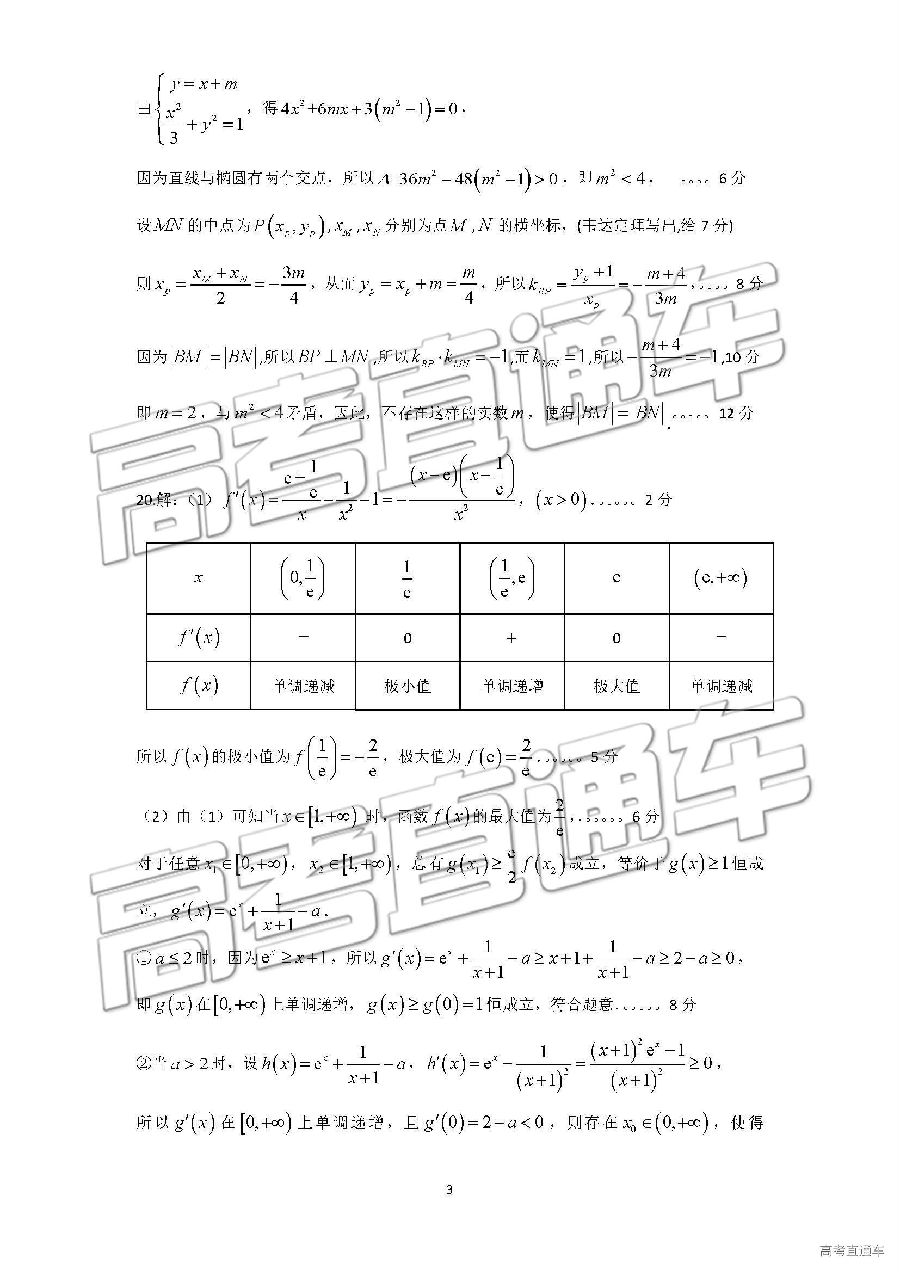 由 { y = x + m, x²/3 + y² = 1 , 得 4x²+6mx+3(m²−1)=0,
因为直线与椭圆有两个交点, 所以 Δ=36m²−48(m²−1)>0, 即 m²<4, 。。。。6分
设MN的中点为P(x_p, y_p), x_M, x_N 分别为点M, N的横坐标, (韦达定理写出,给7分)
则 x_p = (x_M + x_N)/2 = −3m/4, 从而 y_p = x_p + m = m/4, 所以 k_BP = (y_p+1)/x_p = −(m+4)/3m, 。。。。8分
因为 |BM| = |BN|, 所以 BP⊥MN, 所以 k_BP·k_MN = −1, 而 k_MN = 1, 所以 −(m+4)/3m = −1, 10分
即 m=2, 与 m²<4 矛盾, 因此, 不存在这样的实数 m, 使得 |BM| = |BN|. 。。。。12分
20.解:(1) f′(x) = (e−1/e)/x − 1/x² − 1 = −(x−e)(x−1/e)/x², (x>0) 。。。。。。2分
x (0,1/e) 1/e (1/e,e) e (e,+∞)
f′(x) − 0 + 0 −
f(x) 单调递减 极小值 单调递增 极大值 单调递减
所以 f(x) 的极小值为 f(1/e) = −2/e, 极大值为 f(e) = 2/e 。。。。。。5分
(2)由(1)可知当 x∈[1,+∞) 时, 函数 f(x) 的最大值为 2/e, 。。。。。。6分
对于任意 x₁∈[0,+∞), x₂∈[1,+∞), 总有 g(x₁) ≥ e/2 f(x₂) 成立, 等价于 g(x)≥1 恒成
立, g′(x) = eˣ + 1/(x+1) − a.
① a≤2 时, 因为 eˣ ≥ x+1, 所以 g′(x) = eˣ + 1/(x+1) − a ≥ x+1+ 1/(x+1) − a ≥ 2−a ≥ 0,
即 g(x) 在 [0,+∞) 上单调递增, g(x) ≥ g(0) = 1 恒成立, 符合题意. 。。。。。8分
②当 a>2 时, 设 h(x) = eˣ + 1/(x+1) − a, h′(x) = eˣ − 1/(x+1)² = ((x+1)²eˣ−1)/(x+1)² ≥ 0,
所以 g′(x) 在 [0,+∞) 上单调递增, 且 g′(0) = 2−a < 0, 则存在 x₀∈(0,+∞), 使得
3
高考直通车
高考直通车
高考直通车